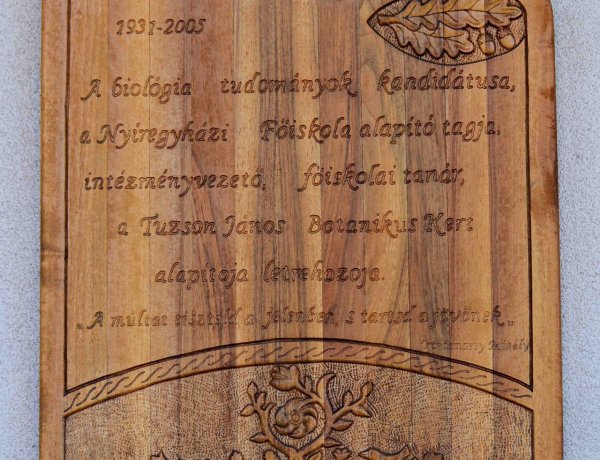 1931-2005
A biológia tudományok kandidátusa,
a Nyíregyházi Főiskola alapító tagja,
intézményvezető, főiskolai tanár,
a Tuzson János Botanikus Kert
alapítója létrehozója.
„A múltat tiszteld a jelenben, s tartsd a jövőnek„
Vörösmarty Mihály